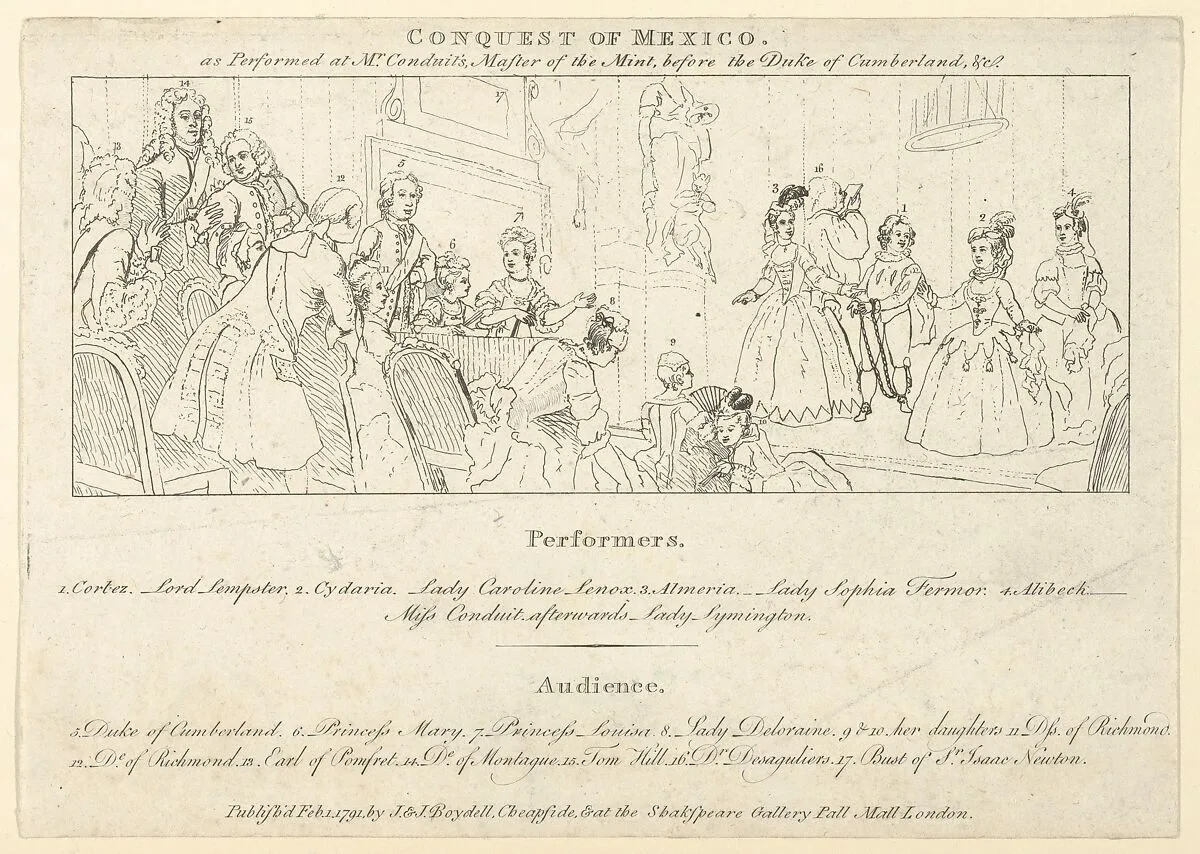 CONQUEST OF MEXICO.
as Performed at Mr. Conduit's, Master of the Mint, before the Duke of Cumberland, &c.
14
17
15
13
12
5
16
3
4
1
2
7
6
11
8
9
10
Performers.
1. Cortez. Lord Lempster. 2. Cydaria. Lady Caroline Lenox. 3. Almeria. Lady Sophia Fermor. 4. Alibech.
Miſs Conduit afterwards Lady Lymington.
Audience.
5. Duke of Cumberland. 6. Princeſs Mary. 7. Princeſs Louisa. 8. Lady Deloraine. 9 & 10. her daughters 11. Dſs. of Richmond.
12. De. of Richmond. 13. Earl of Pomfret. 14. De. of Montague. 15. Tom Hill. 16. Dr. Desaguliers. 17. Bust of Sr. Isaac Newton.
Publiſh'd Feb. 1. 1791, by J. & J. Boydell, Cheapſide, & at the Shakſpeare Gallery Pall Mall London.